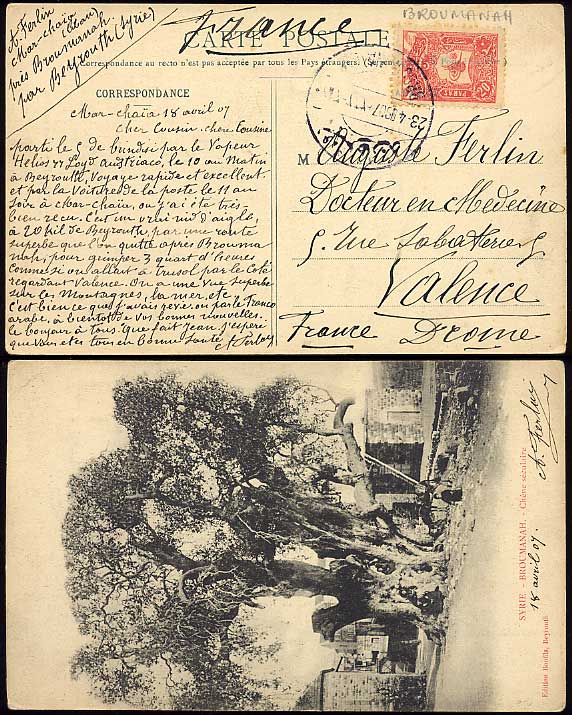 BROUMANAH
France
CARTE POSTALE
Correspondance au recto n'est pas acceptée par tous les Pays étrangers.
A Ferlin
Mar-chaia (Liban)
près Broummanah
par Beyrouth (Syrie)
CORRESPONDANCE
Mar-Chaïa 18 avril 07
Cher Cousin, chere Cousine
parti le 5 de brindisi par le Vapeur
Helios du Loyd Austriaco, le 10 au Matin
à Beyrouth, Voyage rapide et excellent
et par la Voiture de la poste le 11 au
Soir à Mar-Chaïa, ou j'ai été très-
bien recu. C'est un vrai nid d'aigle,
à 20 kil de Beyrouth, par une route
superbe que l'on quitte après Brouma
nah, pour grimper 3 quart d'heures
comme si on allait à par le Coté
regardant Valence. On a une Vue Superbe
sur les Montagnes, la mer, etc
C'est bien ce que j'avais revé, ou parle franco
arabe, à bientot de Vos bonnes nouvelles.
le bonjour à tous. Que fait Jean. J'espère
que Vous etes tous en bonne Santé A Ferlin
23-4-907
20 PARAS 20
M Auguste Ferlin
Docteur en Medecine
5. Rue 5
Valence
France Drome
SYRIE. - BROUMANAH. - Chêne séculaire
Edition Bonfils, Beyrouth
18 avril 07. A. Ferlin